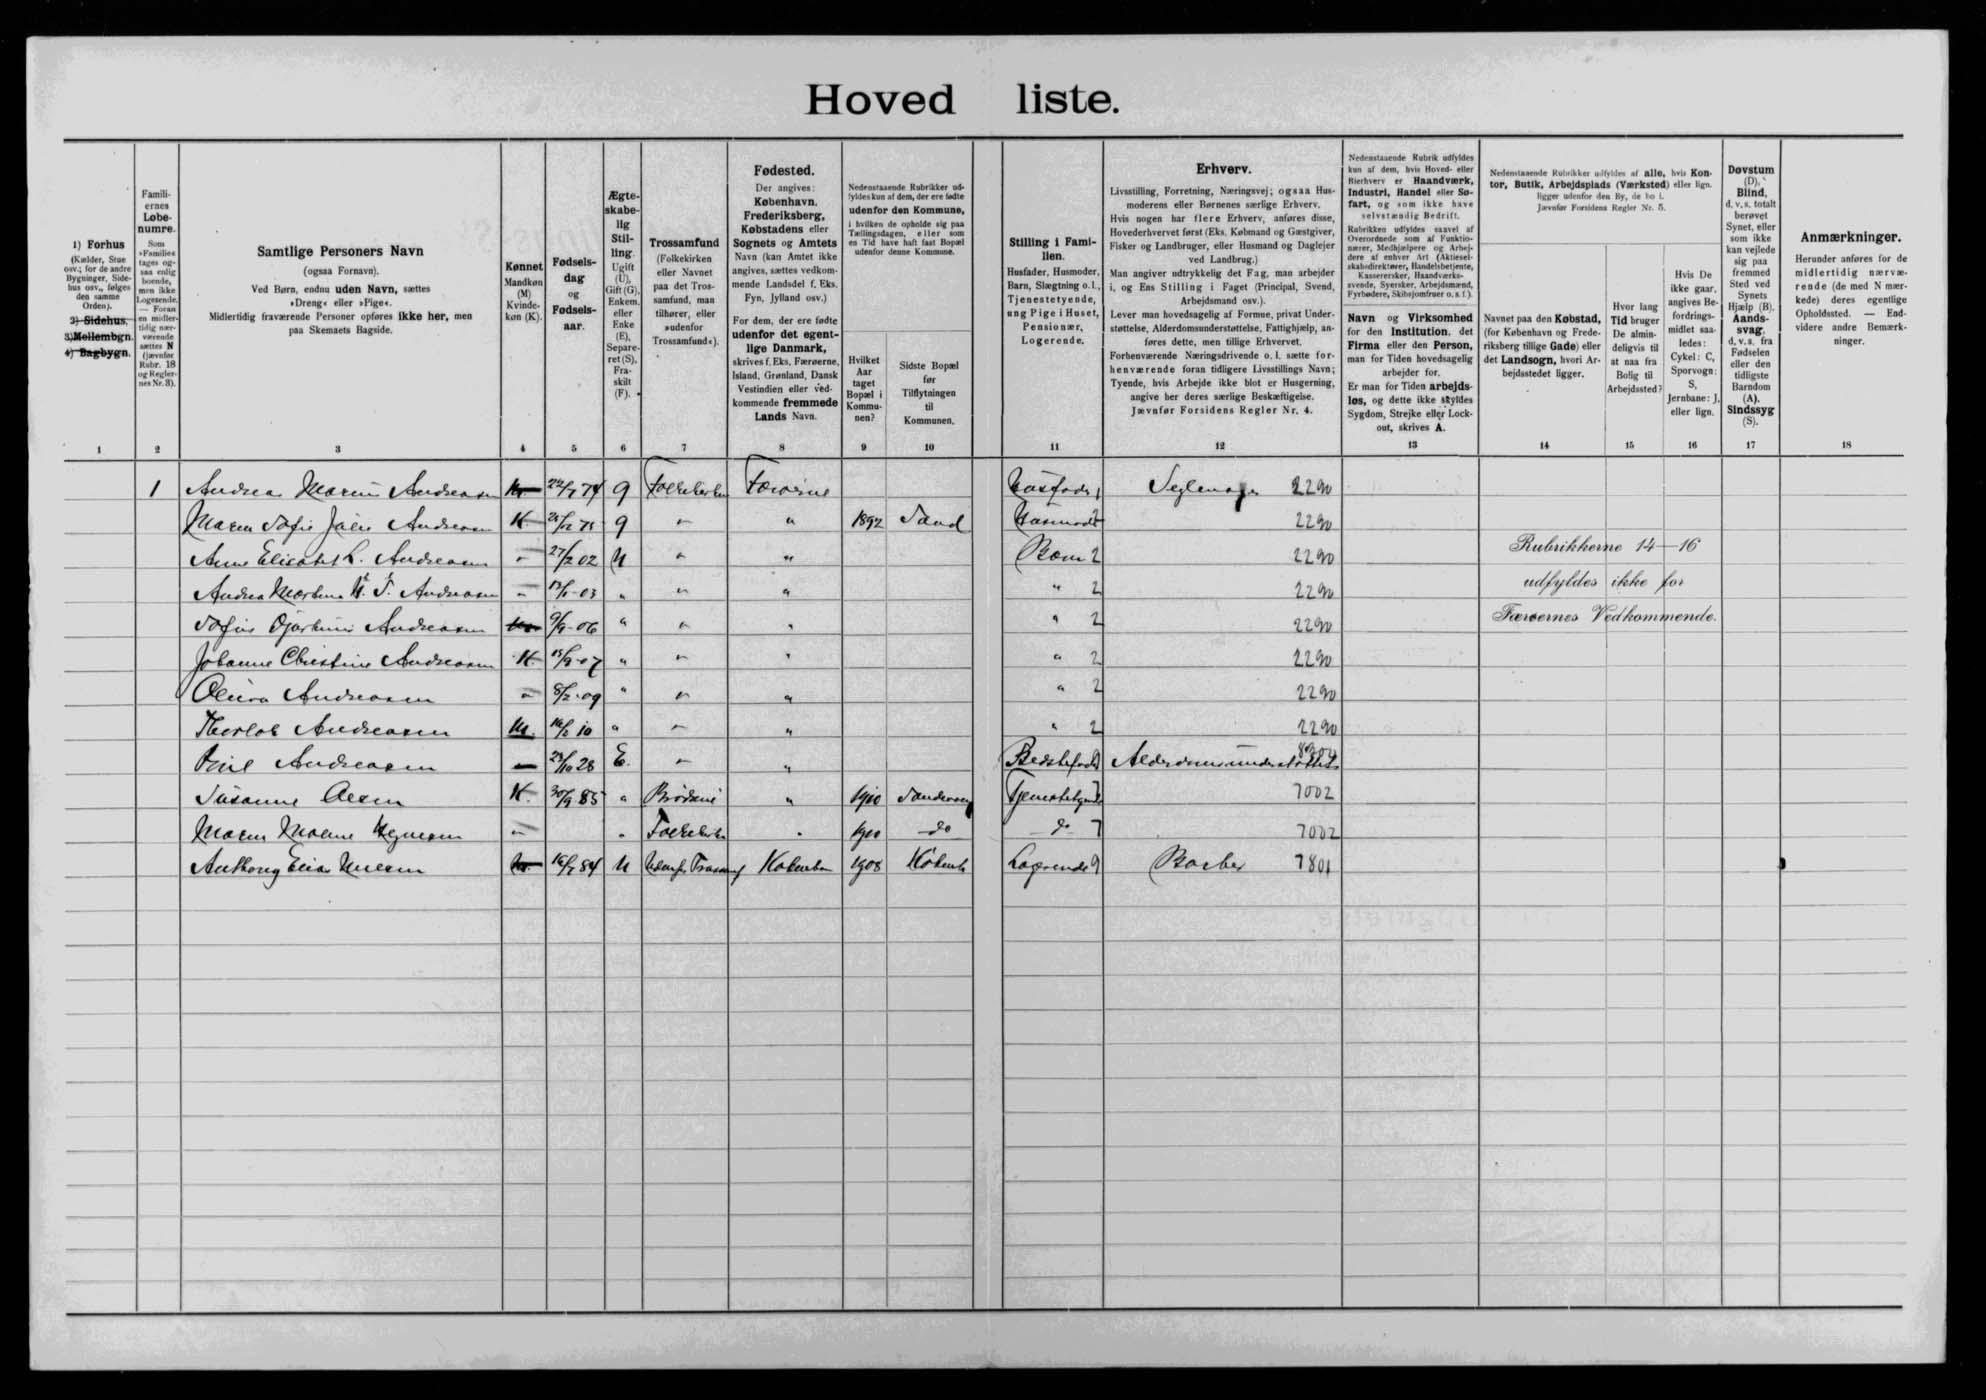 Hoved liste.
1) Forhus
(Kælder, Stue
osv.; for de andre
Bygninger, Side-
hus osv., følges
den samme
Orden).
2) Sidehus,
3) Mellembgn.
4) Bagbygn.
Famili-
ernes
Løbe-
numre.
Som
»Familie«
tages og-
saa enlig
boende,
men ikke
Logerende.
— Foran
en midler-
tidig nær-
værende
sættes N
(jævnfør
Rubr. 18
og Regler-
nes Nr. 3).
Samtlige Personers Navn
(ogsaa Fornavn).
Ved Børn, endnu uden Navn, sættes
»Dreng« eller »Pige«.
Midlertidig fraværende Personer opføres ikke her, men
paa Skemaets Bagside.
Kønnet
Mandkøn
(M)
Kvinde-
køn (K).
Fødsels-
dag
og
Fødsels-
aar.
Ægte-
skabe-
lig
Stil-
ling.
Ugift
(U),
Gift (G),
Enkem.
eller
Enke
(E),
Separe-
ret (S),
Fra-
skilt
(F).
Trossamfund
(Folkekirken
eller Navnet
paa det Tros-
samfund, man
tilhører, eller
»udenfor
Trossamfund«).
Fødested.
Der angives:
København,
Frederiksberg,
Købstadens eller
Sognets og Amtets
Navn (kan Amtet ikke
angives, sættes vedkom-
mende Landsdel f. Eks.
Fyn, Jylland osv.)
For dem, der ere fødte
udenfor det egent-
lige Danmark,
skrives f. Eks. Færøerne,
Island, Grønland, Dansk
Vestindien eller ved-
kommende fremmede
Lands Navn.
Nedenstaaende Rubrikker ud-
fyldes kun af dem, der ere fødte
udenfor den Kommune,
i hvilken de opholde sig paa
Tællingsdagen, eller som
es Tid have haft fast Bopæl
udenfor denne Kommune.
Hvilket
Aar
taget
Bopæl i
Kommu-
nen?
Sidste Bopæl
før
Tilflytningen
til
Kommunen.
Stilling i Fami-
lien.
Husfader, Husmoder,
Barn, Slægtning o. l.,
Tjenestetyende,
ung Pige i Huset,
Pensionær,
Logerende.
Erhverv.
Livsstilling, Forretning, Næringsvej; ogsaa Hus-
moderens eller Børnenes særlige Erhverv.
Hvis nogen har flere Erhverv, anføres disse,
Hovederhvervet først (Eks. Købmand og Gæstgiver,
Fisker og Landbruger, eller Husmand og Daglejer
ved Landbrug.)
Man angiver udtrykkelig det Fag, man arbejder
i, og Ens Stilling i Faget (Principal, Svend,
Arbejdsmand osv.).
Lever man hovedsagelig af Formue, privat Under-
støttelse, Alderdomsunderstøttelse, Fattighjælp, an-
føres dette, men tillige Erhvervet.
Forhenværende Næringsdrivende o. l. sætte for-
henværende foran tidligere Livsstillings Navn;
Tyende, hvis Arbejde ikke blot er Husgerning,
angive her deres særlige Beskæftigelse.
Jævnfør Forsidens Regler Nr. 4.
Nedenstaaende Rubrik udfyldes
kun af dem, hvis Hoved- eller
Bierhverv er Haandværk,
Industri, Handel eller Sø-
fart, og som ikke have
selvstændig Bedrift.
Rubrikken udfyldes saavel af
Overordnede som af Funktio-
nærer, Medhjælpere og Arbej-
dere af enhver Art (Aktiesel-
skabsdirektører, Handelsbetjente,
Kasserersker, Haandværks-
svende, Syersker, Arbejdsmænd,
Fyrbødere, Skibsjomfruer o. s. f.).
Navn og Virksomhed
for den Institution, det
Firma eller den Person,
man for Tiden hovedsagelig
arbejder for.
Er man for Tiden arbejds-
løs, og dette ikke skyldes
Sygdom, Strejke eller Lock-
out, skrives A.
Nedenstaaende Rubrikker udfyldes af alle, hvis Kon-
tor, Butik, Arbejdsplads (Værksted) eller lign.
ligger udenfor den By, de bo i.
Jævnfør Forsidens Regler Nr. 5.
Navnet paa den Købstad,
(for København og Frede-
riksberg tillige Gade) eller
det Landsogn, hvori Ar-
bejdsstedet ligger.
Hvor lang
Tid bruger
De almin-
deligvis til
at naa fra
Bolig til
Arbejdssted?
Hvis De
ikke gaar,
angives Be-
fordrings-
midlet saa-
ledes:
Cykel: C,
Sporvogn:
S,
Jernbane: J,
eller lign.
Døvstum
(D),
Blind,
d. v. s. totalt
berøvet
Synet, eller
som ikke
kan vejlede
sig paa
fremmed
Sted ved
Synets
Hjælp (B).
Aands-
svag,
d. v. s. fra
Fødselen
eller den
tidligste
Barndom
(A).
Sindssyg
(S).
Anmærkninger.
Herunder anføres for de
midlertidig nærvæ-
rende (de med N mær-
kede) deres egentlige
Opholdssted. — End-
videre andre Bemærk-
ninger.
1 2 3 4 5 6 7 8 9 10 11 12 13 14 15 16 17 18
1 Andreas Andreasen G Folkekirken Færøerne Husfader 2290
Maren Sofie Andreasen K G " " 1892 Sand Husmoder 2 2290
Anne Elisabet Andreasen " 27/2 02 U " " Barn 2 2290
Andrea Andreasen " " " " " 2 2290
Andreasen " " " " 2 2290
Johanne Christine Andreasen K. " " " " 2 2290
Andreasen " 8/2 09 " " " " 2 2290
Andreasen M. " " " " 2 2290
Andreasen E. " " Alderdomsunderstøttelse
Susanne K. 30/9 85 " " 1910 Tjenestetyende 7 7002
Maren " " Folkekirken " 1910 do do 7 7002
Anthony U København 1908 Logerende 9 Barber 7801
Rubrikkerne 14—16
udfyldes ikke for
Færøernes Vedkommende.